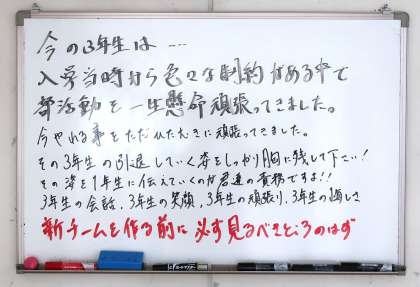 今の3年生は…
入学当時から色々な制約がある中で
部活動を一生懸命頑張ってきました。
今やれる事をただひたむきに頑張ってきました。
その3年生の引退していく姿をしっかり胸に残して下さい!
その姿を1年生に伝えていくのが君達の責務ですよ!!
3年生の会話、3年生の笑顔、3年生の頑張り、3年生の悔しさ
新チームを作る前に必ず見るべきところのはず